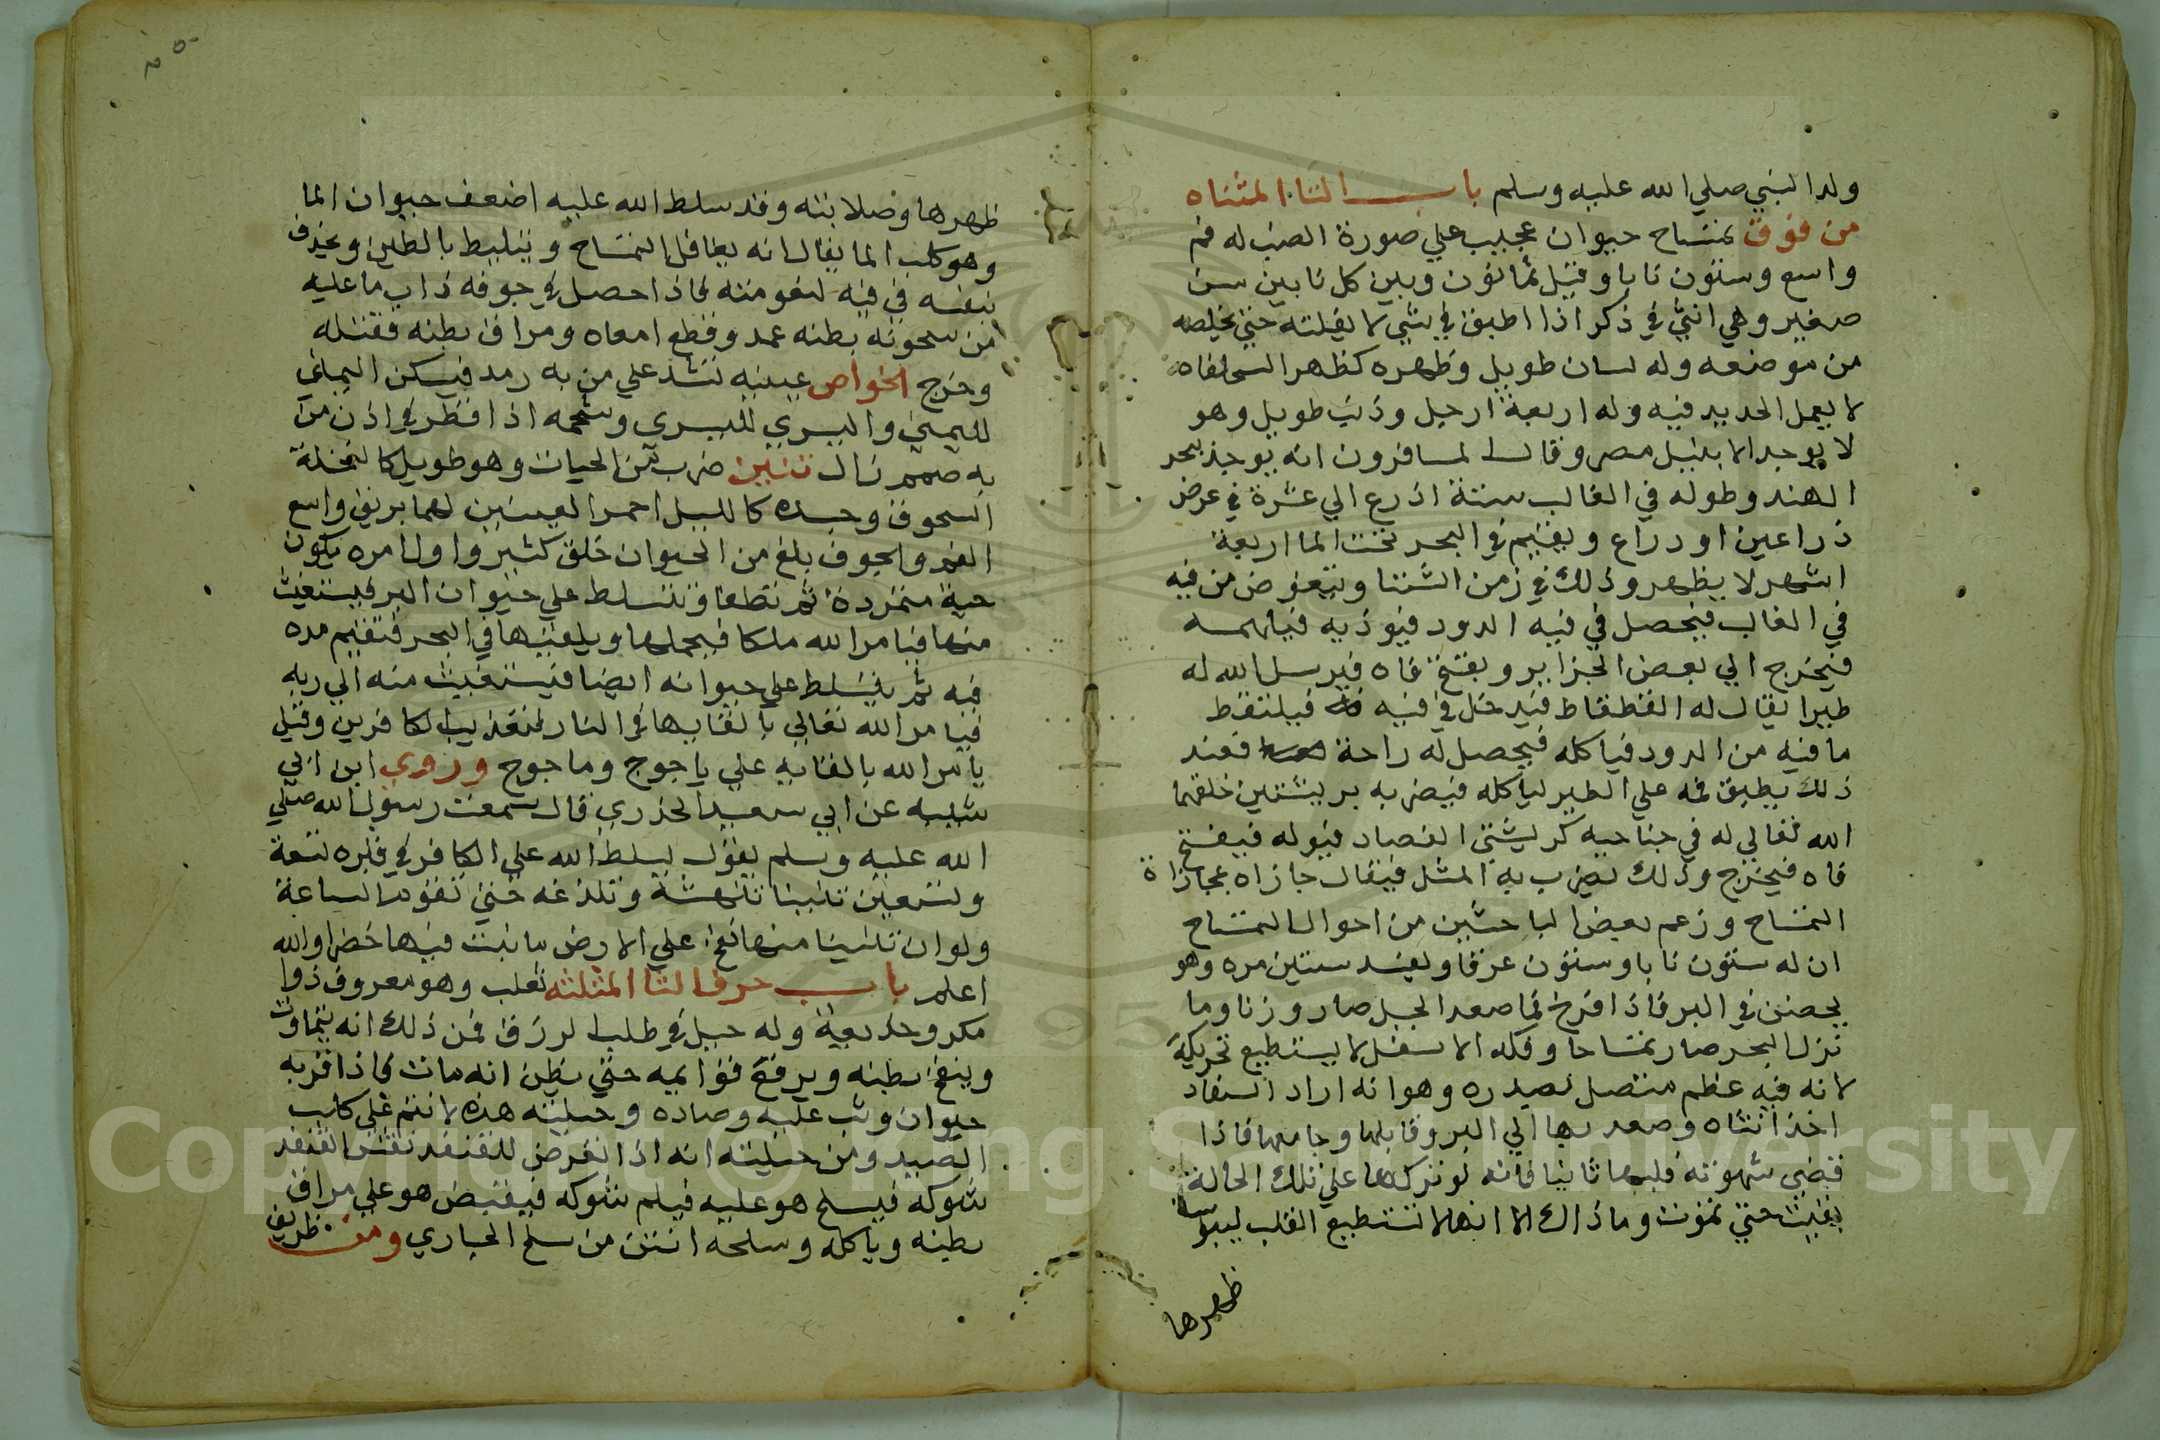 ولد النبي صلي الله عليه وسلم باب التا المثناه
من فوق تمساح حيوان عجيب علي صورة الضب له فم
واسع وستون نابا وقيل ثمانون وبين كل نابين سن
صغير وهي انثي في ذكر اذا اطبق في شي لا يفلته حتي يخلصه
من موضعه وله لسان طويل وظهره كظهر السحلفاه
لا يعمل الحديد فيه وله اربعة ارجل وذنب طويل وهو
لا يوجد الا بنيل مصر وقال المسافرون انه يوجد ببحر
الهند وطوله في الغالب ستة اذرع الي عشرة في عرض
ذراعين او دراع ويقيم في البحر تحت الما اربعة
اشهر لا يظهر وذلك في زمن الشتا ويتعوض من فيه
في الغالب فيحصل في فيه الدود فيوذيه فيلهمه
فيخرج الي بعض الجزاير ويفتح فاه فيرسل الله له
طيرا يقال له القطقاط فيدخل في فيه فيلتقط
ما فيه من الدود فياكله فيحصل له راحة فعند
ذلك يطبق فمه علي الطير لياكله فيضربه بريشتين خلقهما
الله تعالي له في جناحيه كريشتي الفصاد فيوله فيفتح
فاه فيخرج وذلك يضرب به المثل فيقال جازاه مجازاة
التمساح وزعم بعض الباحثين من احوال التمساح
ان له ستون نابا وستون عرقا ويفسد ستين مره وهو
يحضن في البر فاذا افرخ فما صعد الجبل صار ورنا وما
نزل البحر صار تمساحا وفكه الاسفل لا يستطيع تحريكه
لانه فيه عظم متصل بصدره وهو انه اراد السفاد
اخذ انثاه وصعد بها الي البر وقلبها وجامعها فاذا
قضي شهوته قلبها ثانيا فانه لو تركها علي تلك الحالة
بقيت حتي تموت وما ذاك الا انها لا تستطيع القلب ليبوسة
ظهرها
ظهرها وصلابته وقد سلط الله عليه اضعف حيوان الما
وهو كلب الما يقال انه يغافل التمساح ويتلبط بالطين ويخذف
بنفسه في فيه لنعومته فاذا حصل في جوفه ذاب ما عليه
من سحونة بطنه عمد وقطع امعاه ومراق بطنه فقتله
وخرج الخواص عينيه تشد علي من به رمد فيسكن اليماني
لليمني واليسري لليسري وشحمه اذا قطر في اذن من
به صمم زال تنين ضرب من الحيات وهو طويل كالنخلة
السحوق وجسده كالليل احمر العينين لهما بريق واسع
الفم والجوف يبلغ من الحيوان خلق كثير واول امره يكون
حية متمردة ثم تطغا وتتسلط علي حيوان البر فيستغيث
منها فيامر الله ملكا فيحملها ويلقيها في البحر فتقيم مده
فيه ثم يتسلط علي حيوانه ايضا فيستغيث منه الي ربه
فيامر الله تعالي بالقايها في النار لتعذيب الكافرين وقيل
يامر الله بالقايه علي ياجوج وماجوج وروي ابن ابي
شيبه عن ابي سعيد الخدري قال سمعت رسول الله صلي
الله عليه وسلم يقول يسلط الله علي الكافر في قبره تسعة
وتسعين تنينا تنهشه وتلدغه حتي تقوم الساعة
ولو ان تنينا منها نفخ علي الارض ما نبتت فيها خضرا والله
اعلم باب حرف الثا المثلثه ثعلب وهو معروف ذوا
مكر وخديعة وله حيل في طلب الرزق فمن ذلك انه يتماوت
وينفخ بطنه ويرفع قوايمه حتي يظن انه مات فاذا قربه
حيوان وثب عليه وصاده وحيلته هذه لا تتم علي كلب
الصيد ومن حيلته انه اذا تعرض للقنفد نفش القنفد
شوكه فيسلح هو عليه فيلم شوكه فيقبض هو علي مراق
بطنه وياكله وسلحه انتن من سلح الحباري ومن ظريف